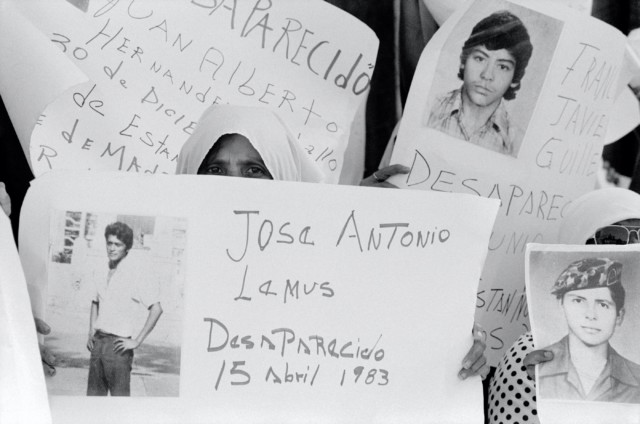 DESAPARECIDO
JUAN ALBERTO
HERNANDEZ
30 de DICIE
de ESTAN
E de MAD
R
FRAN
JAVIE
GOME
DESAPAREC
UNIO
STAN
JOSE ANTONIO
LEMUS
DESAPARECIDO
15 Abril 1983